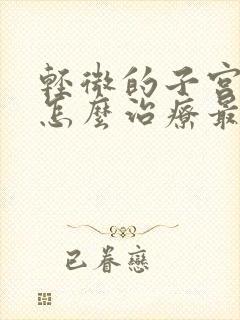 輕微的子宮
怎麼治療最
已眷戀